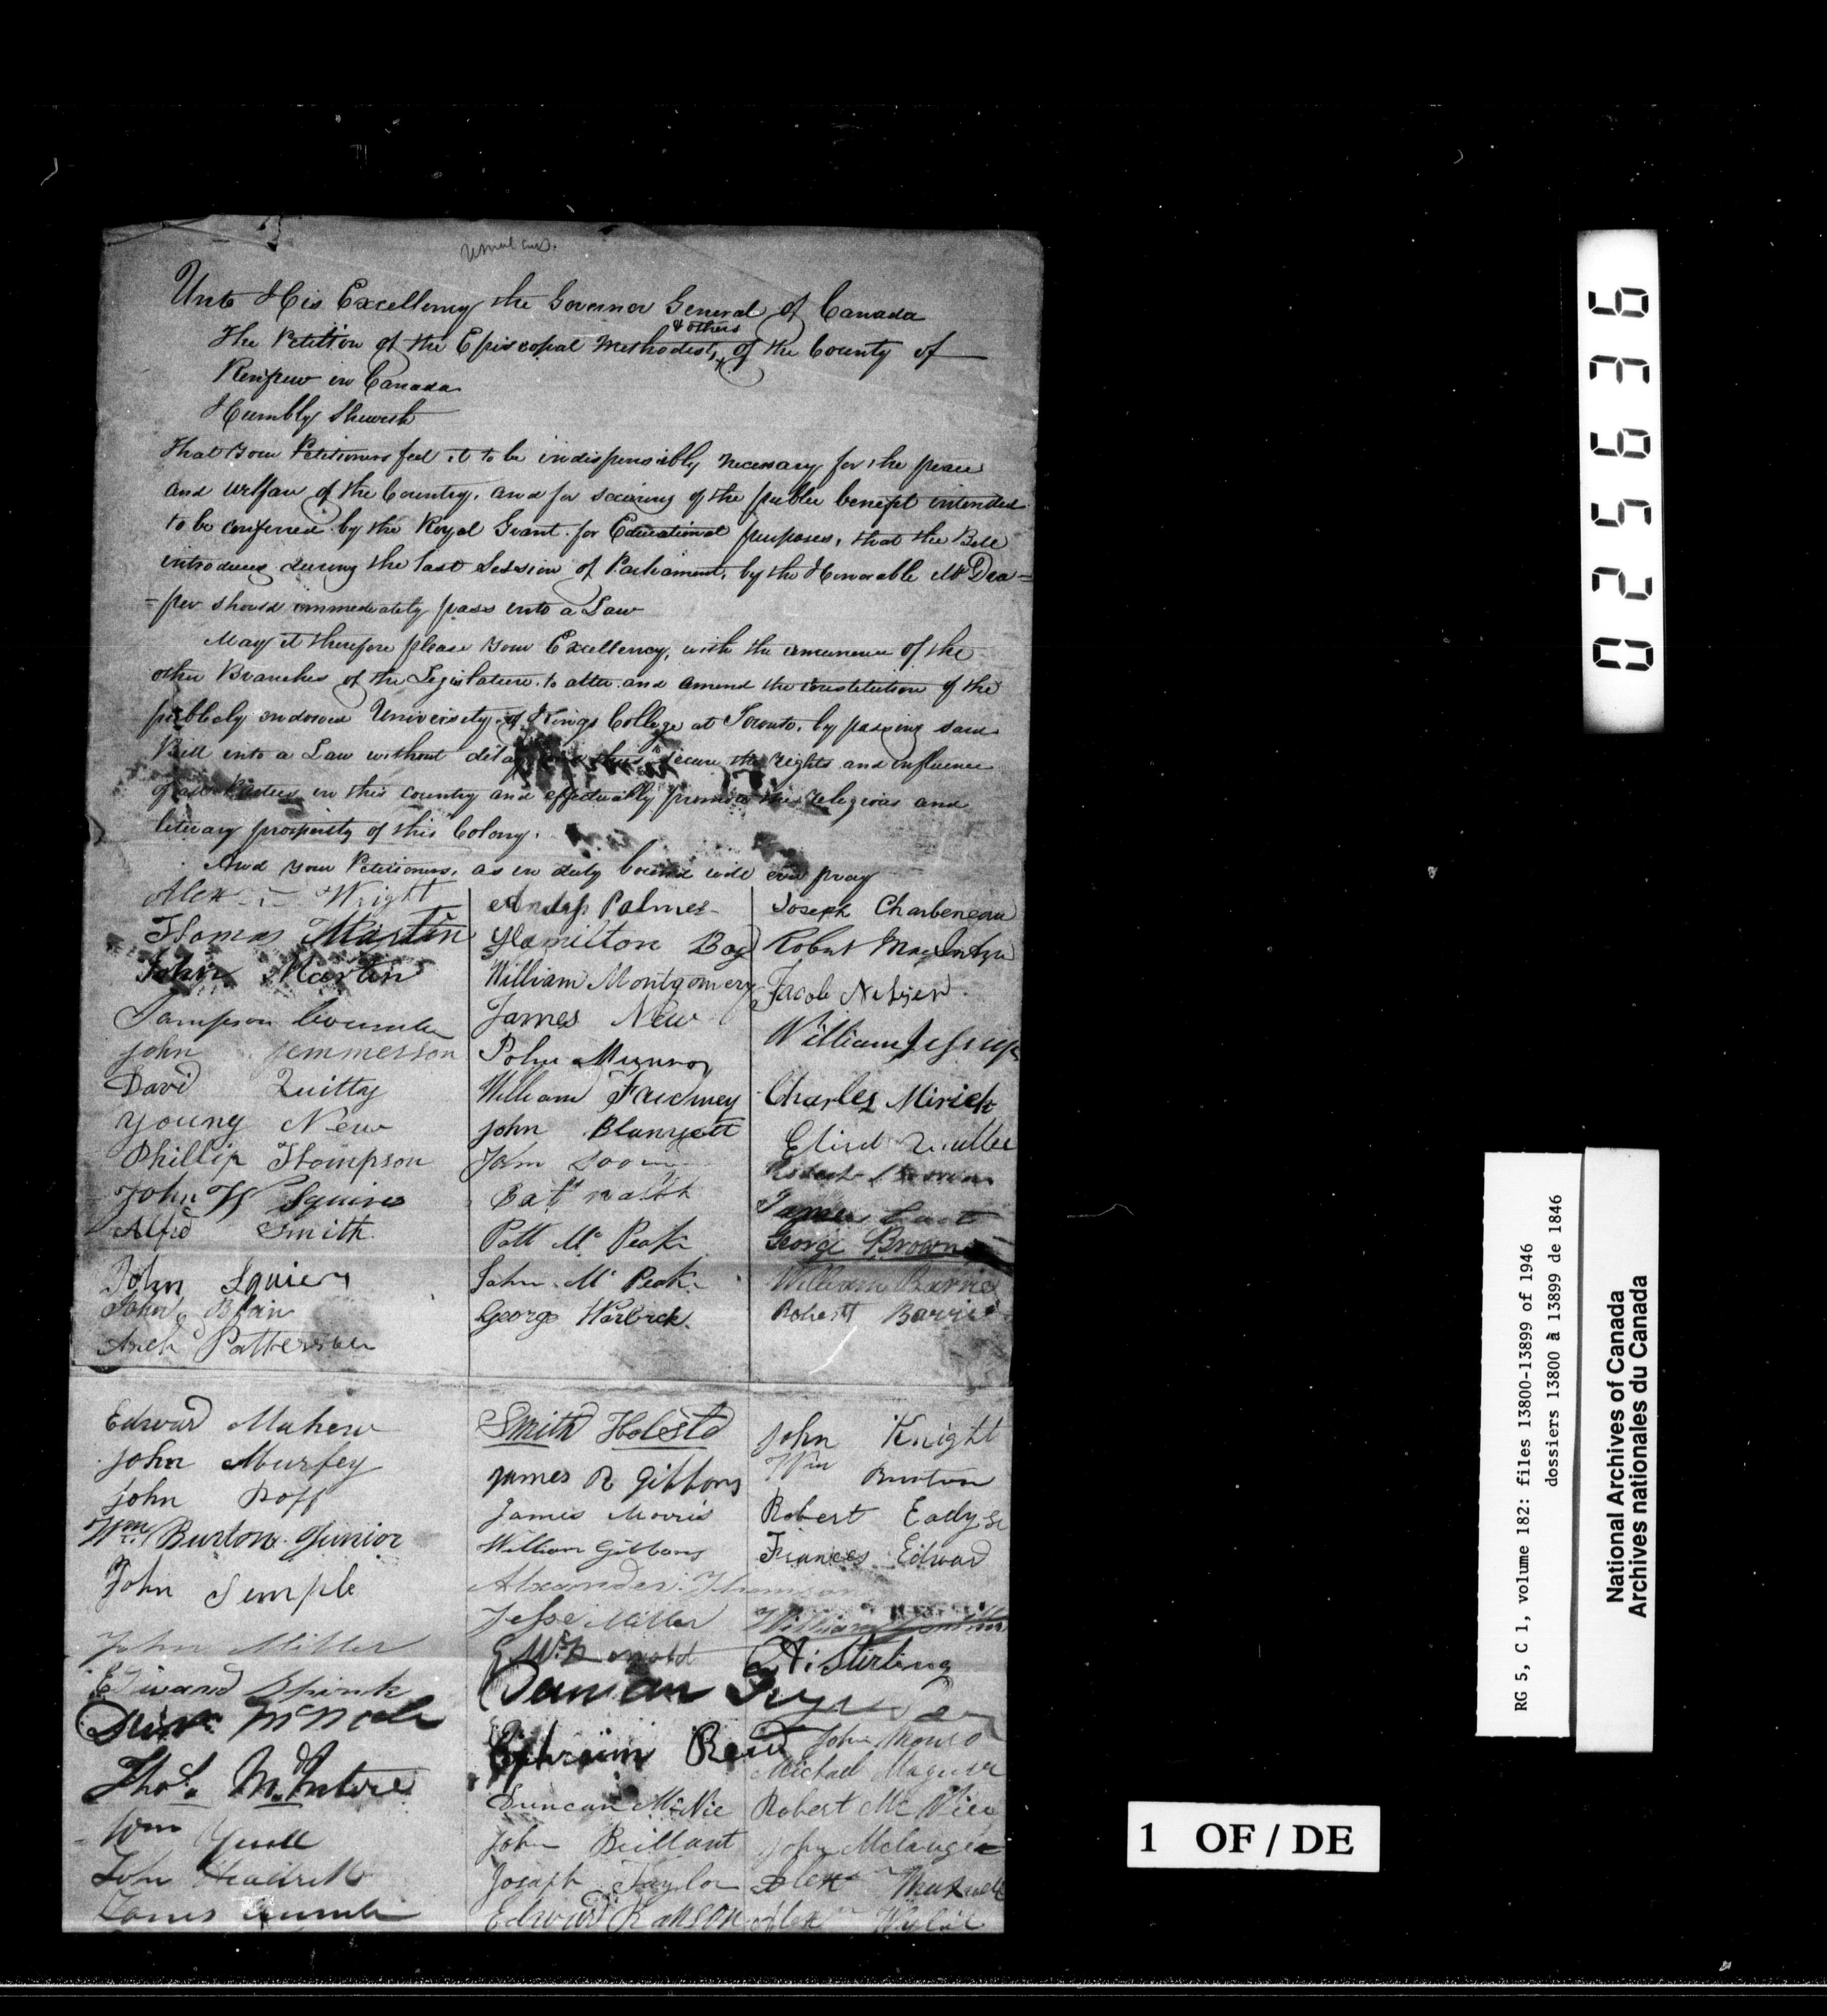 Unto His Excellency the Governor General of Canada
& others
The Petition of the Episcopal Methodists, of the County of
Renfrew in Canada
Humbly Sheweth
That your Petitioners feel it to be indispensibly necessary for the peace
and welfare of the Country, and for securing of the public benefit intended
to be conferred by the Royal Grant for Educational purposes, that the Bill
introduced during the last Session of Parliament, by the Honorable Mr Dra=
=per should immediately pass into a Law
May it therefore please your Excellency, with the concurrence of the
other Branches of the Legislature to alter and amend the constitution of the
publicly endowed University of Kings College at Toronto, by passing said
Bill into a Law without delay and thus secure the rights and influence
of all Parties in this country and effectually promote the religious and
literary prosperity of this Colony.
And your Petitioners, as in duty bound will ever pray
Alexr Wright
Thomas Martin
John Martin
Sampson
John Jemmesson
David Quitty
Young New
Phillip Thompson
John W Squires
Alfred Smith
John Squiers
John Blair
Arch Patterson
Edward Mahew
John Murfey
John Roff
Wm Burton Junior
John Semple
John Miller
Edward Spink
McNab
Thos. McIntire
Wm Yuill
John
James
Palmer
Hamilton Boy
William Montgomery
James New
John Munro
William
John
John
Patt Mc Peak
John Mc Peak
George Warbrck
Smith Holested
James R Gibbons
James Morris
William Gibbons
Alexander Thomson
Jesse Miller
Duncan
Ephraim Reid
Duncan McNie
John Brillant
Joseph Taylor
Edward Ranson
Joseph Charbeneau
Robert MacIntyre
Jacob
William Jessup
Charles Mirick
Robert Brown
James
George Brown
William Barrie
Robert Barrie
John Knight
Wm Burton
Robert Eady Sr
Frances Edward
William
A. Stirling
John
Michael
Robert McNiee
John
Alexr Maxwell
Alexr Wylie
025636
RG 5, C 1, volume 182: files 13800-13899 of 1946
dossiers 13800 à 13899 de 1846
National Archives of Canada
Archives nationales du Canada
1 OF / DE